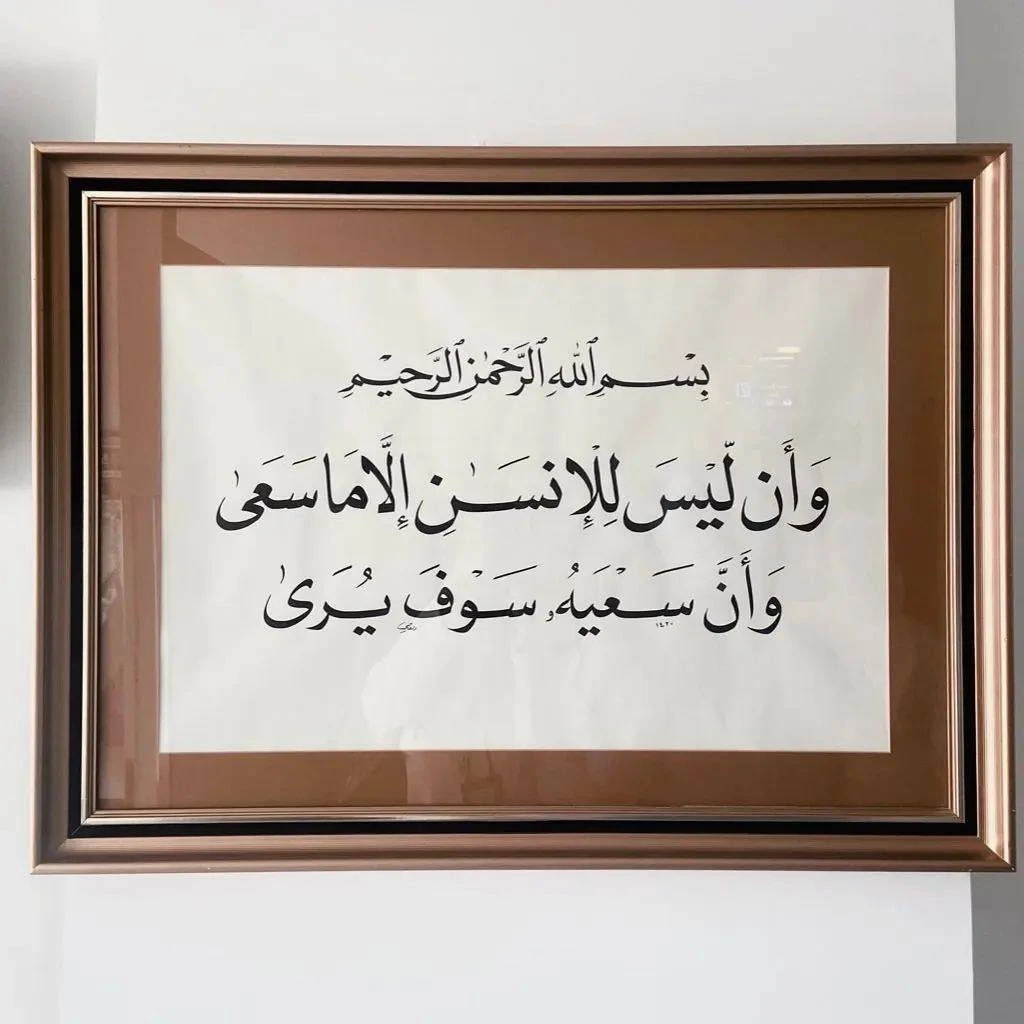 بِسْمِ ٱللَّهِ ٱلرَّحْمَٰنِ ٱلرَّحِيْمِ
وَأَن لَّيْسَ لِلْإِنسَـٰنِ إِلَّا مَا سَعَىٰ
وَأَنَّ سَعْيَهُۥ سَوْفَ يُرَىٰ
١٤٢٠